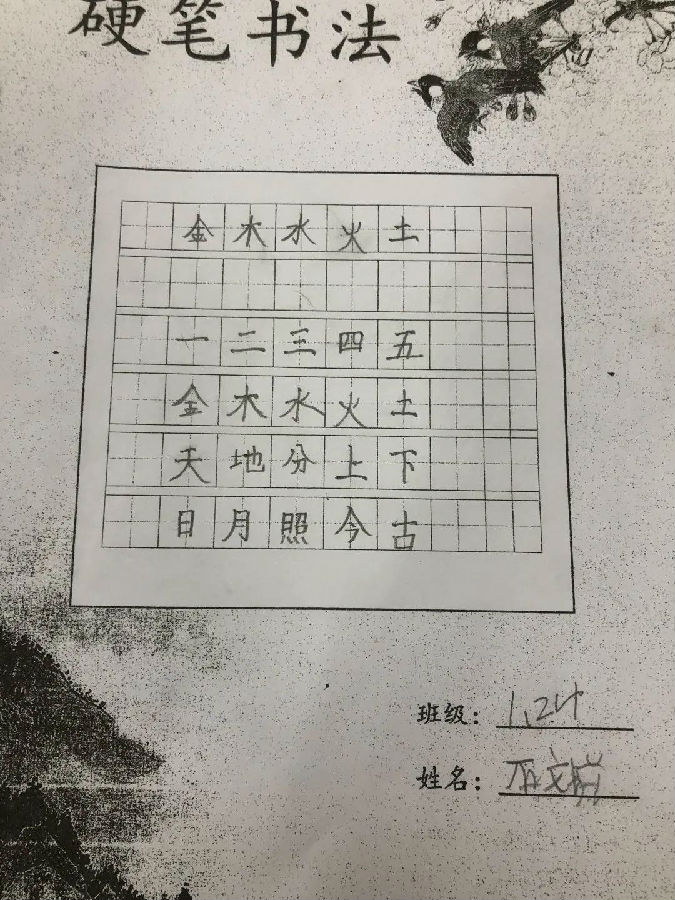 硬笔书法
金木水火土
一二三四五
金木水火土
天地分上下
日月照今古
班级：1.24
姓名：